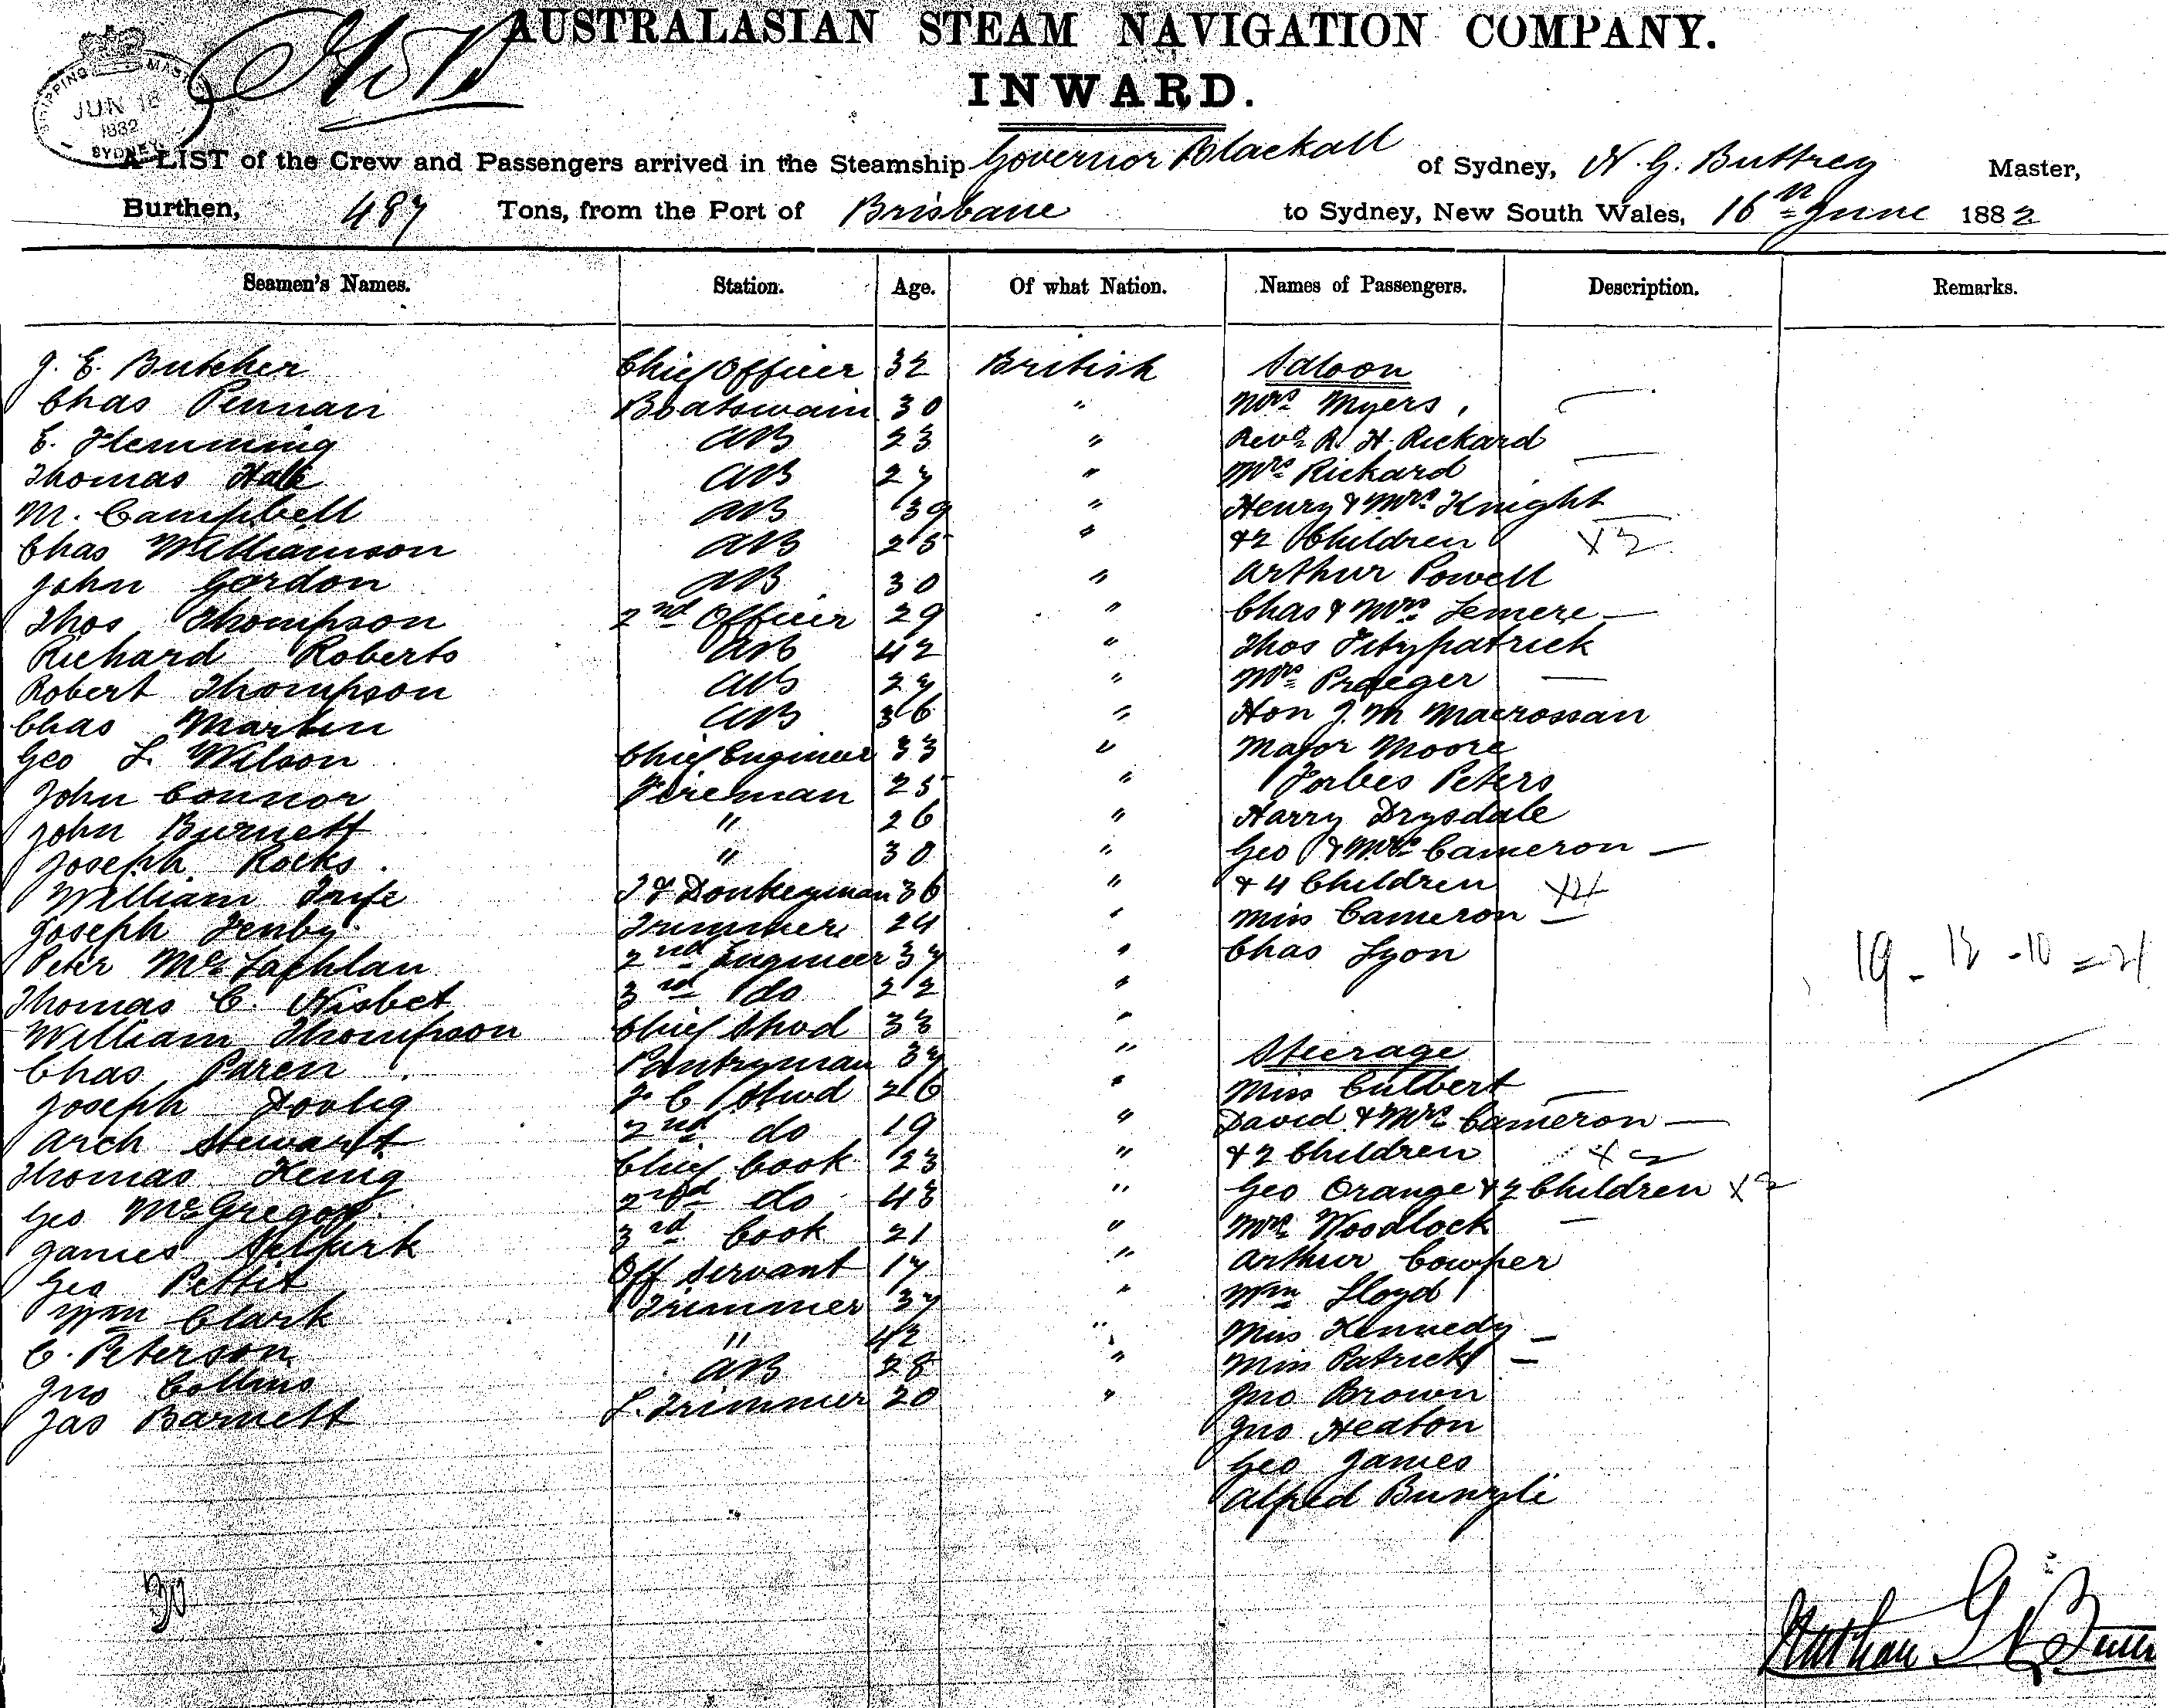 AUSTRALASIAN STEAM NAVIGATION COMPANY.
INWARD.
SHIPPING MAST
JUN 16
1882
SYDNEY
A LIST of the Crew and Passengers arrived in the Steamship Governor Blackall of Sydney, N. G. Buttrey Master,
Burthen, 487 Tons, from the Port of Brisbane to Sydney, New South Wales, 16th June 1882
Seamen's Names. Station. Age. Of what Nation. Names of Passengers. Description. Remarks.
J. E. Butcher Chief Officer 32 British Saloon
Chas Pennan Boatswain 30 " Mrs Myers
E. Flemming AB 23 " Revd R. H. Rickard
Thomas Hall AB 27 " Mrs Rickard
M. Campbell AB 39 " Henry & Mrs Knight
Chas Williamson AB 25 " & 2 Children X2
John Gordon AB 30 " Arthur Powell
Thos Thompson 2nd Officer 29 " Chas & Mrs Lemere
Richard Roberts AB 42 " Thos Fitzpatrick
Robert Thompson AB 27 " Mrs Praeger
Chas Martin AB 36 " Hon J. M Macrossan
Geo L. Wilson Chief Engineer 33 " Major Moore
John Connor Fireman 25 " Forbes Peters
John Burnett " 26 " Harry Drysdale
Joseph Rocks " 30 " Geo & Mrs Cameron
William Fife & Donkeyman 36 " & 4 Children X4
Joseph Fenby Trimmer 24 " Miss Cameron
Peter McLachlan 2nd Engineer 37 " Chas Lyon
Thomas C. Nisbet 3rd do 22 "
19 - 12 - 10 = 21
William Thompson Chief Stwd 33 "
Chas Paren Pantryman 37 " Steerage
Joseph F C Stwd 26 " Miss Culbert
Arch Stewart 2nd do 19 " David & Mrs Cameron
Thomas Chief Cook 23 " & 2 Children X2
Geo McGregor 2nd do 43 " Geo Orange & 2 Children X2
James Selkirk 3rd Cook 21 " Mrs Woodlock
Geo Pettit Off Servant 17 " Arthur Cowper
Wm Clark Trimmer 37 " Wm Lloyd
C. Peterson " 42 " Miss Kennedy
Jno Collins AB 28 " Miss Patrick
Jas Barnett L. Trimmer 20 " Jno Brown
Jno Heaton
Geo James
Alfred
30
Nathan G